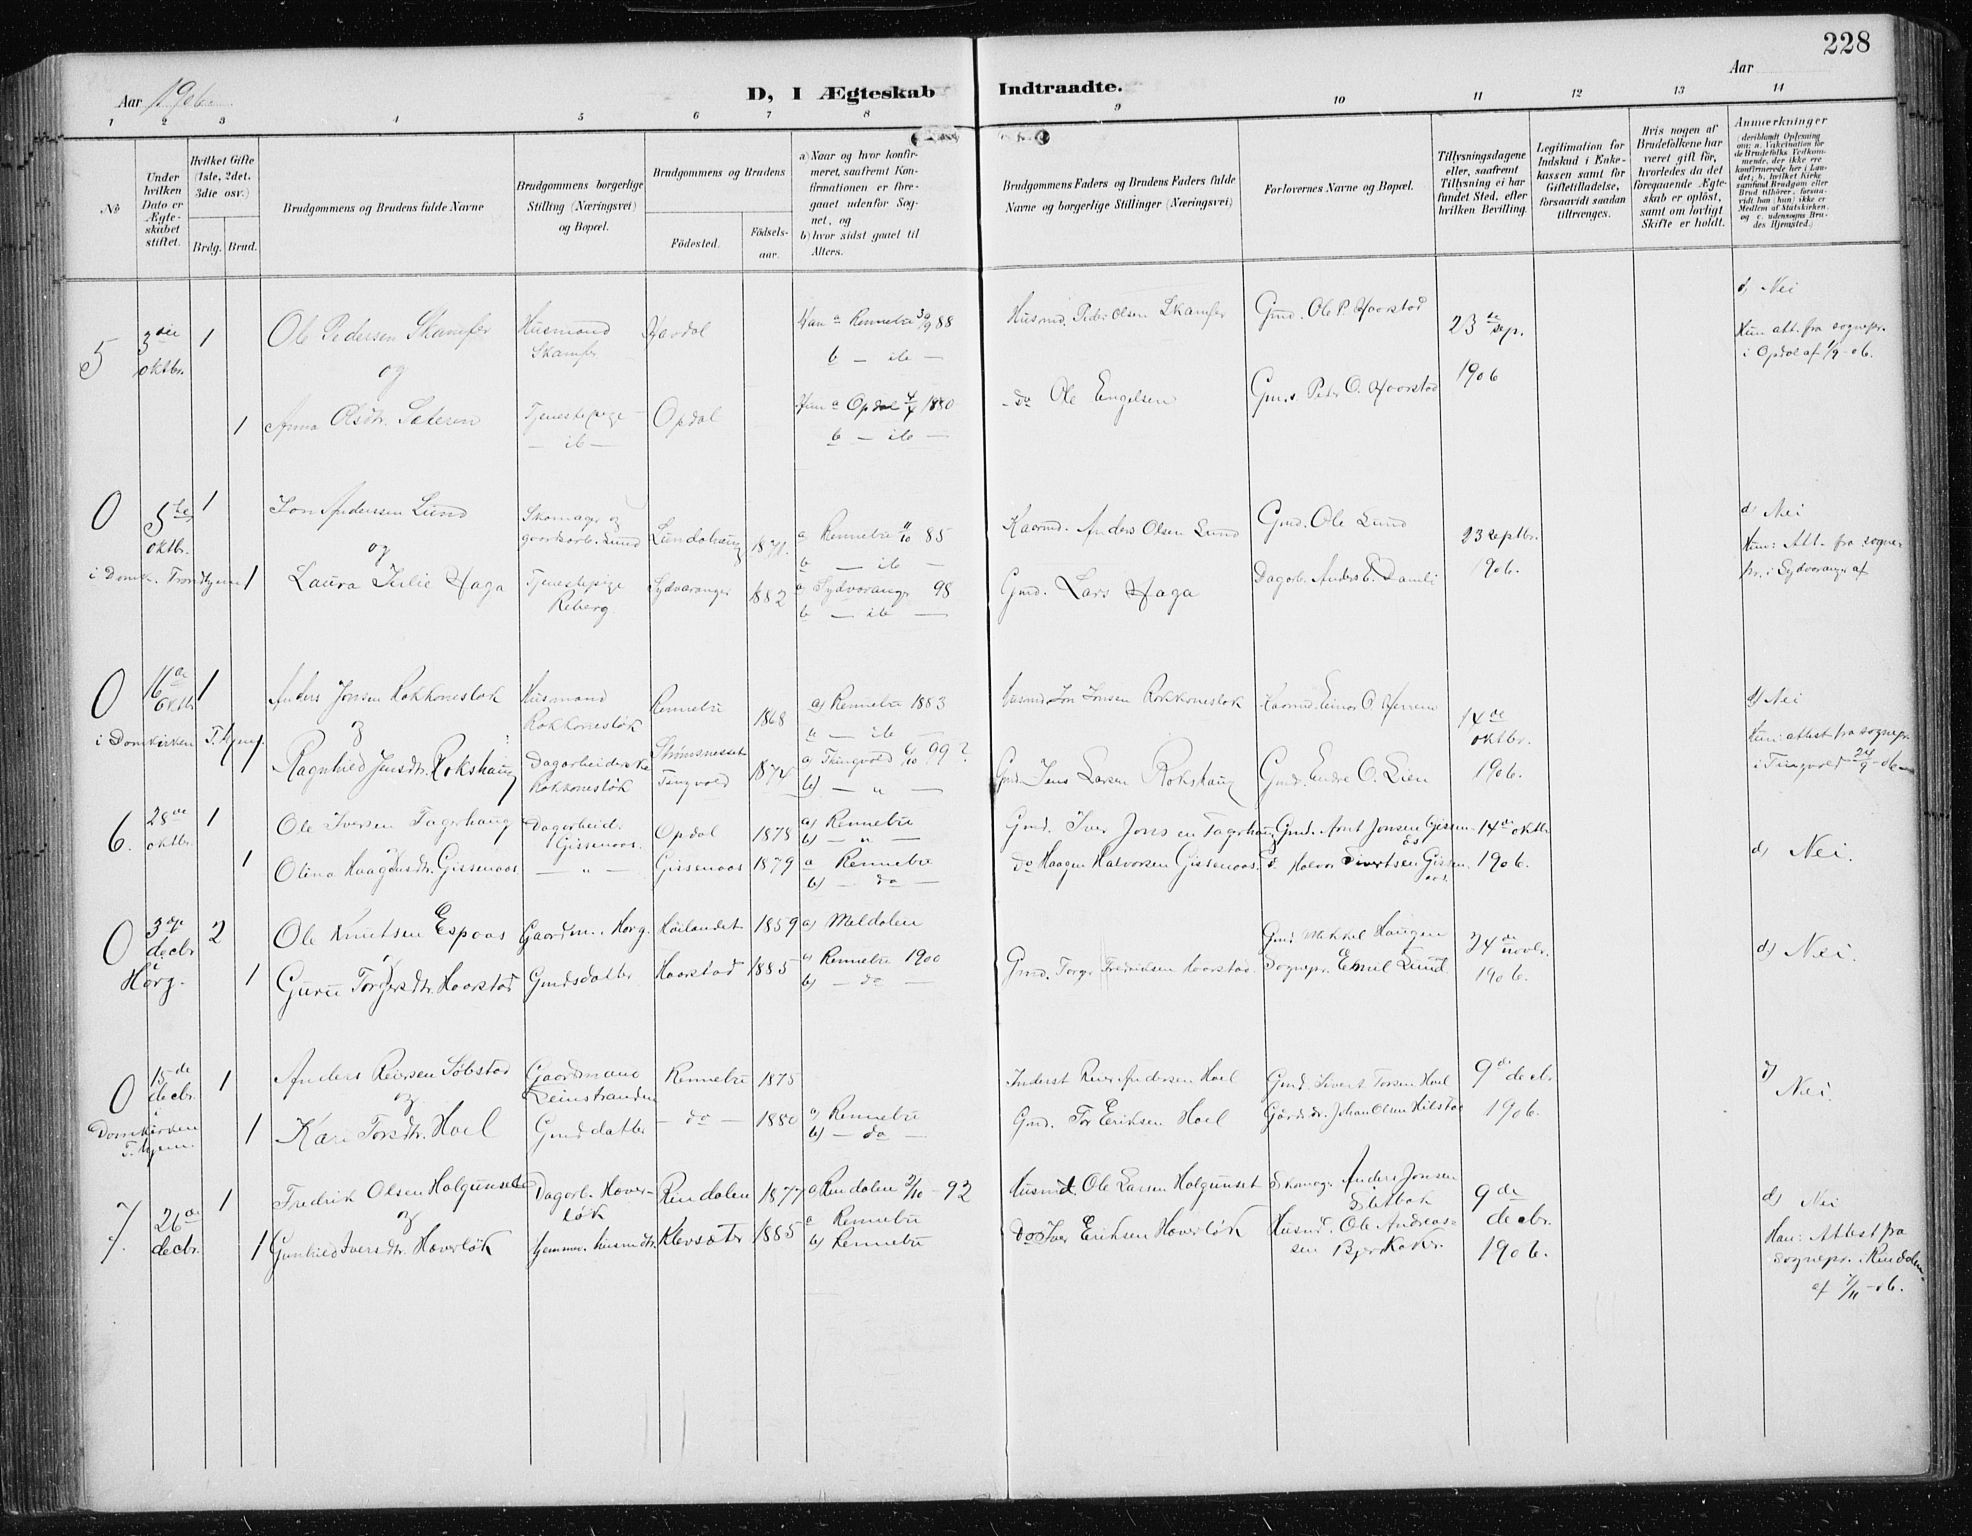 228
Aar 1906
D, I Ægteskab Indtraadte.
Aar
1 2 3 4 5 6 7 8 9 10 11 12 13 14
No
Under hvilken Dato er Ægteskabet stiftet.
Hvilket Gifte (1ste, 2det, 3die osv.)
Brdg. Brud.
Brudgommens og Brudens fulde Navne
Brudgommens borgerlige Stilling (Næringsvei) og Bopæl.
Brudgommens og Brudens
Födested.
Födselsaar.
a) Naar og hvor konfirmeret, saafremt Konfirmationen er foregaaet udenfor Sognet, og
b) hvor sidst gaaet til Alters.
Brudgommens Faders og Brudens Faders fulde Navne og borgerlige Stillinger (Næringsvei)
Forlovernes Navne og Bopæl.
Tillysningsdagene eller, saafremt Tillysning ei har fundet Sted, efter hvilken Bevilling.
Legitimation for Indskud i Enkekassen samt for Giftetilladelse, forsaavidt saadan tiltrænges.
Hvis nogen af Brudefolkene har været gift för, hvorledes da det foregaaende Ægteskab er oplöst, samt om lovligt Skifte er holdt.
Anmærkninger
5 3die oktbr. 1 Ole Pedersen Skamfer Husmand Skamfer Han a Rennebu 30/9 88 b — ib — Husmd. Peder Olsen Skamfer Gmd. Ole P. Haarstad 23de sep. 1906 d) Nei
og
1 Anna Olsdtr. Sæteren Tjenestepige — ib — Opdal Hun a Opdal 1880 b — ib — do Ole Engelsen Gmd. Peter O. Haarstad Hun att. fra sognepr. i Opdal af 1/9 - 06.
0 5te oktbr. 1 Jon Andersen Lund Skomager og gaardsarb. Lund Lundshaug 1871. a Rennebu 11/10 85 b — ib — Kaarmd. Anders Olsen Lund Gmd. Ole Lund 23 septbr. 1906. d) Nei
og
i Domk. Trondhjem 1 Laura Julie Haga Tjenestepige Reberg Sydvaranger 1882 a Sydvaranger 98 b — ib — Gmd. Lars Haga Dagarb. Anders E. Damli Hun: Att. fra sognepr. i Sydvaranger af
0 16de Oktbr 1 Anders Jonsen Rokkoneslök Husmand Rokkoneslök Rennebu 1868 a) Rennebu 1883 a — ib — Husmd. Jon Jonsen Rokkoneslok Kaarmd. Einar O. Herrem 14de oktbr. 1906. d) Nei
og
i Domkirken T.hjem 1 Ragnhild Jensdtr. Rokshaug Dagarbeiderske Rokkoneslök Strömsnesset Tingvold 1872 a) Thingvold 6/10 99? b) — " — Gmd. Jens Larsen Rokshaug Gmd. Endre O. Lien Hun: attest fra sognepr. i Tingvold 24/9 - 06
6. 28de oktbr. 1 Ole Iversen Fagerhaug Dagarbeid. Gissenaas. Opdal 1878 a) Rennebu b) — " — Gmd. Iver Jonsen Fagerhaug Gmd. Arnt Jonsen Gissenaas 14de oktbr. 1906. d) Nei.
1 Olina Haagensdtr. Gissenaas — " — Gissenaas 1879 a Rennebu b) — do — do Haagen Halvorsen Gissenaas. d. Halvor Sivertsen Gissenaas.
0 3die decbr 2 Ole Knutsen Espaas Gaardm. Hörg. Höilandet 1859 a) Meldalen Gmd. Mikkel Haugen 24de novbr. 1906. d) Nei.
Hörg. 1 Guru Torgersdtr. Haarstad Gmdsdatter Haarstad 1885 a) Rennebu 1900 b) — do — Gmd. Torger Fredriksen Haarstad. Sognepr. Emil Lund
0 15de decbr. 1 Anders Reiersen Söbstad Gaardmand Leinstranden Rennebu 1875 Inderst Reier Andersen Hoel Gmd. Sivert Torsen Hoel 9de decbr. 1906. d) Nei.
og
i Domkirken T.hjem. 1 Kari Torsdtr. Hoel Gmd datter — do — 1880 a) Rennebu b) — do — Gmd. Tor Eriksen Hoel Gårdbr. Johan Olsen Hilstad
7. 26de decbr. 1 Fredrik Olsen Halgunset Dagarb. Hæverlök Rindalen 1877 a. Rindalen 2/10 - 92 Husmd. Ole Larsen Halgunset Skomag. Anders Jonsen Sletbak 9de decbr. 1906. d) Nei
og
1 Gunhild Iversdtr. Hæverlök hjemmev. husmdtr. Klevsæter 1885 a Rennebu b) Rennebu Do Iver Eriksen Hæverlök Husmd. Ole Andreassen Bjerkaker. Han: Attest fra sognepr. i Rindalen af 7/11 - 06.